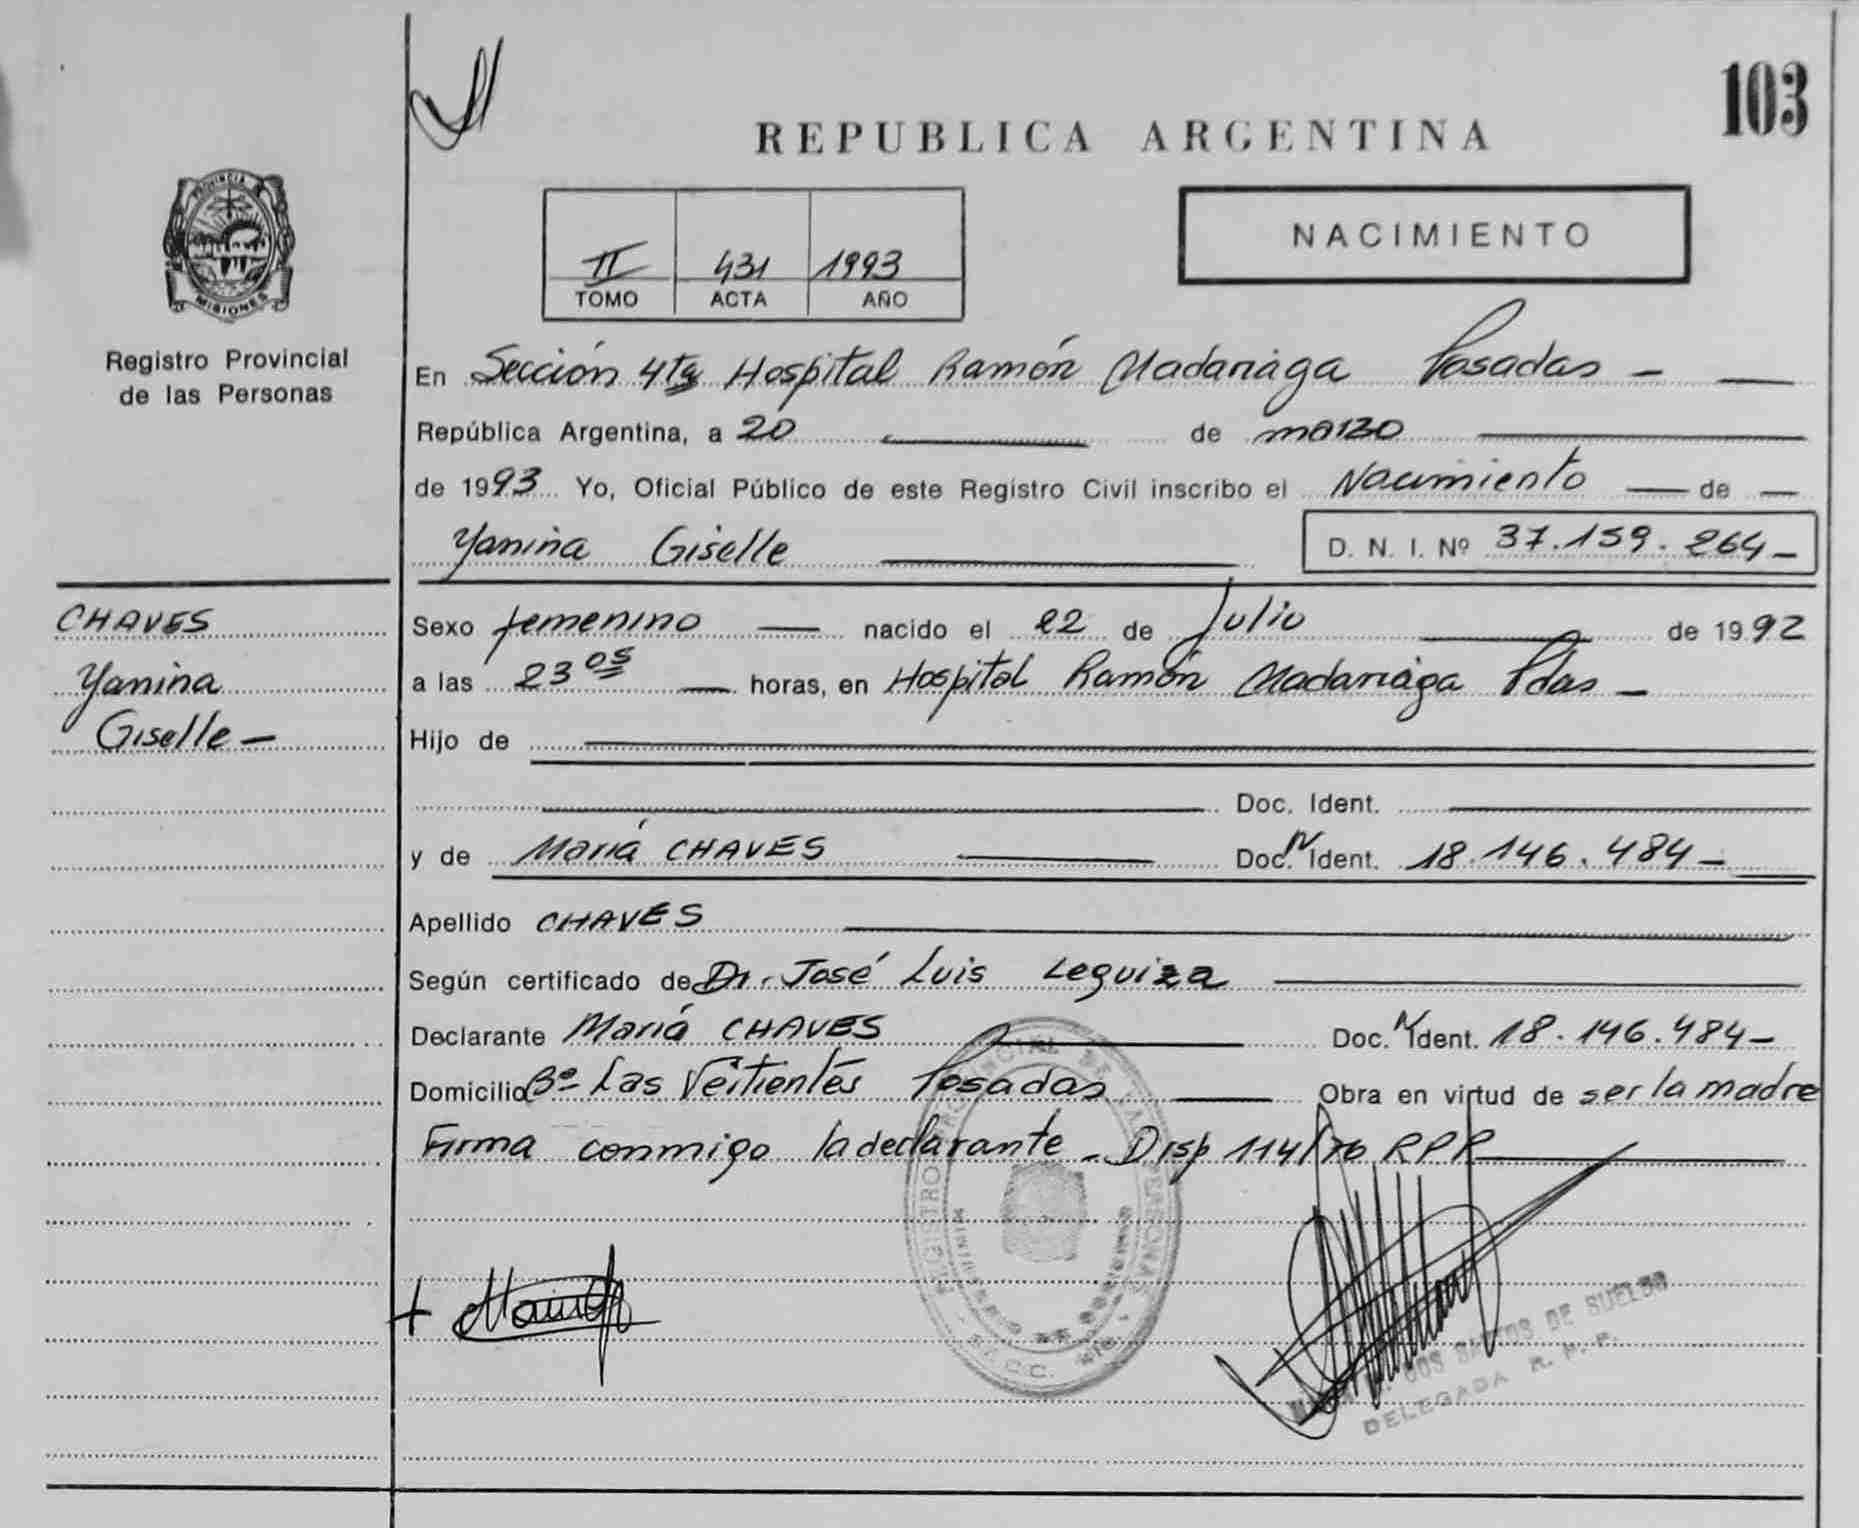 103
REPUBLICA ARGENTINA
PROVINCIA DE
MISIONES
Registro Provincial
de las Personas
II 431 1993
TOMO ACTA AÑO
NACIMIENTO
En Sección 4ta Hospital Ramón Madariaga Posadas -
República Argentina, a 20 de marzo
de 1993 Yo, Oficial Público de este Registro Civil inscribo el Nacimiento de
Yanina Giselle
D. N. I. Nº 37.159.264-
CHAVES
Yanina
Giselle -
Sexo femenino nacido el 22 de Julio de 1992
a las 23 05 horas, en Hospital Ramón Madariaga Pdas -
Hijo de
Doc. Ident.
y de María CHAVES Doc. N Ident. 18.146.484-
Apellido CHAVES
Según certificado de Dr. José Luis Leguiza
Declarante María CHAVES Doc. N Ident. 18.146.484-
Domicilio Bº Las Vertientes Posadas Obra en virtud de ser la madre
Firma conmigo la declarante - Disp 114/76 RPP
REGISTRO PROVINCIAL DE LAS PERSONAS
DOS SANTOS DE SUELDO
DELEGADA R. P. P.